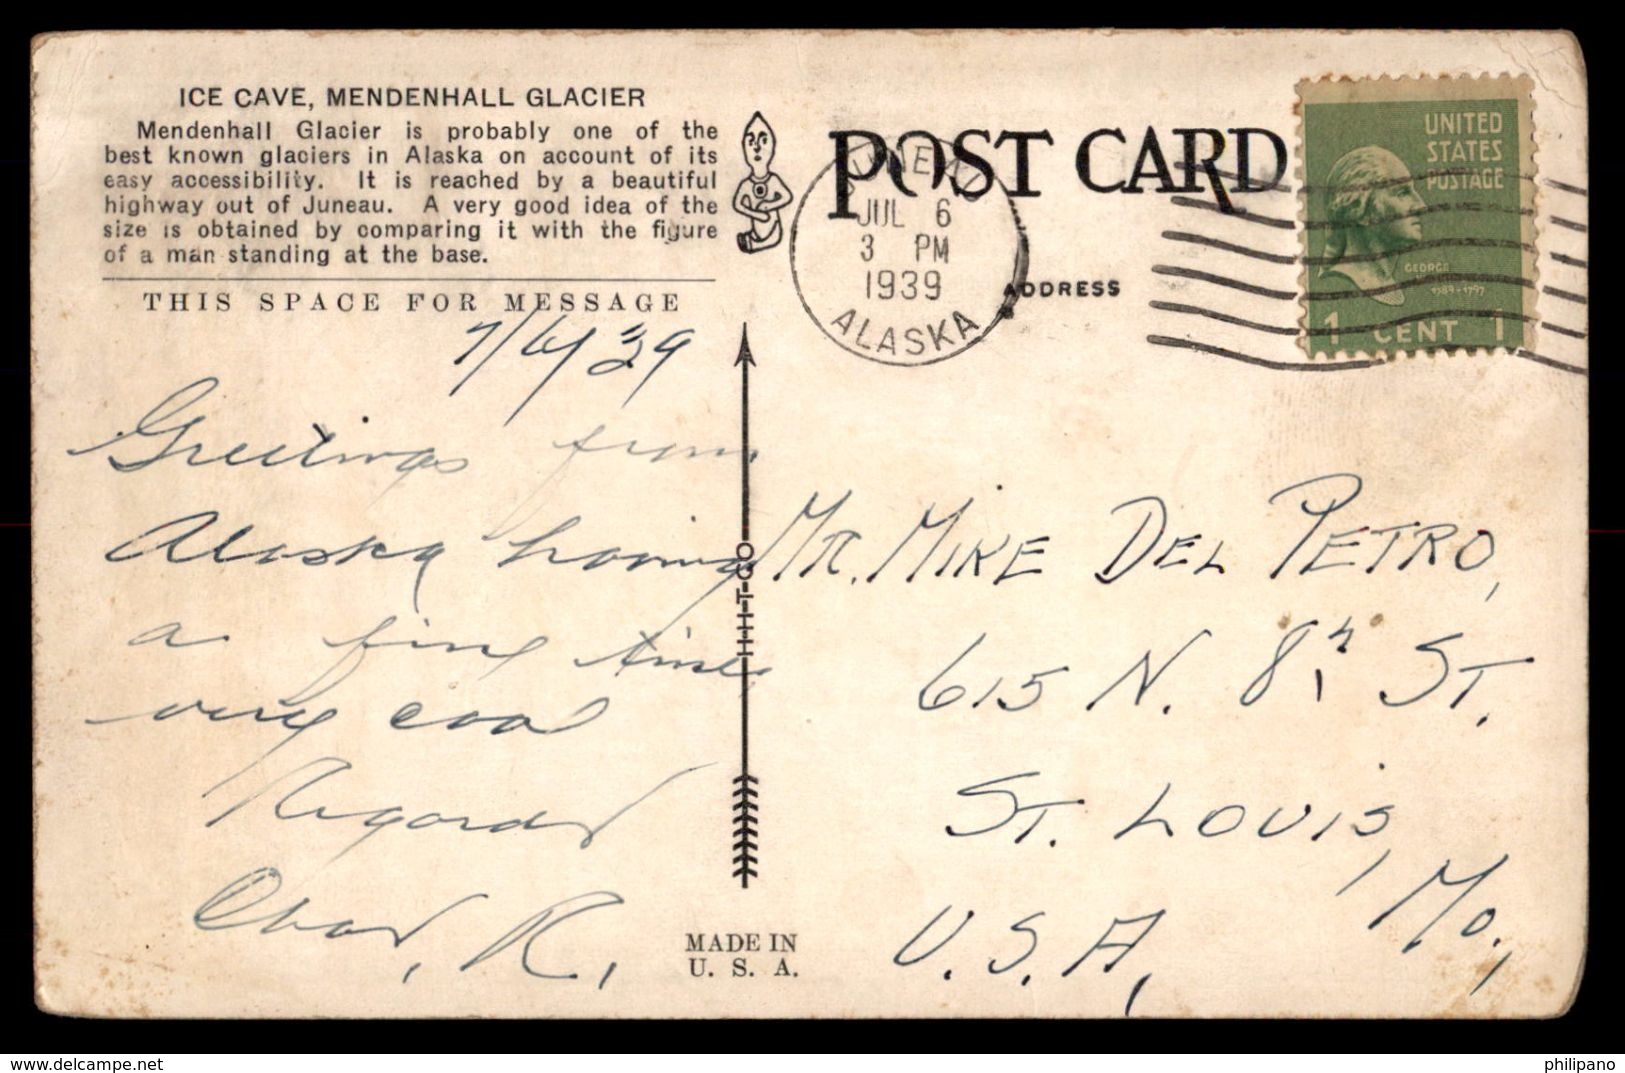 ICE CAVE, MENDENHALL GLACIER
Mendenhall Glacier is probably one of the
best known glaciers in Alaska on account of its
easy accessibility. It is reached by a beautiful
highway out of Juneau. A very good idea of the
size is obtained by comparing it with the figure
of a man standing at the base.
THIS SPACE FOR MESSAGE
7/6/39
Greetings from
Alaska having
a fine time
very cool
Regards
R.
H-H-T-CO
MADE IN
U. S. A.
POST CARD
ADDRESS
JUNEAU
JUL 6
3 PM
1939
ALASKA
UNITED
STATES
POSTAGE
GEORGE
1789-1797
1 CENT 1
MR. MIKE DEL PETRO,
615 N. 8th ST.
ST. LOUIS,
MO.,
U.S.A,
philipano